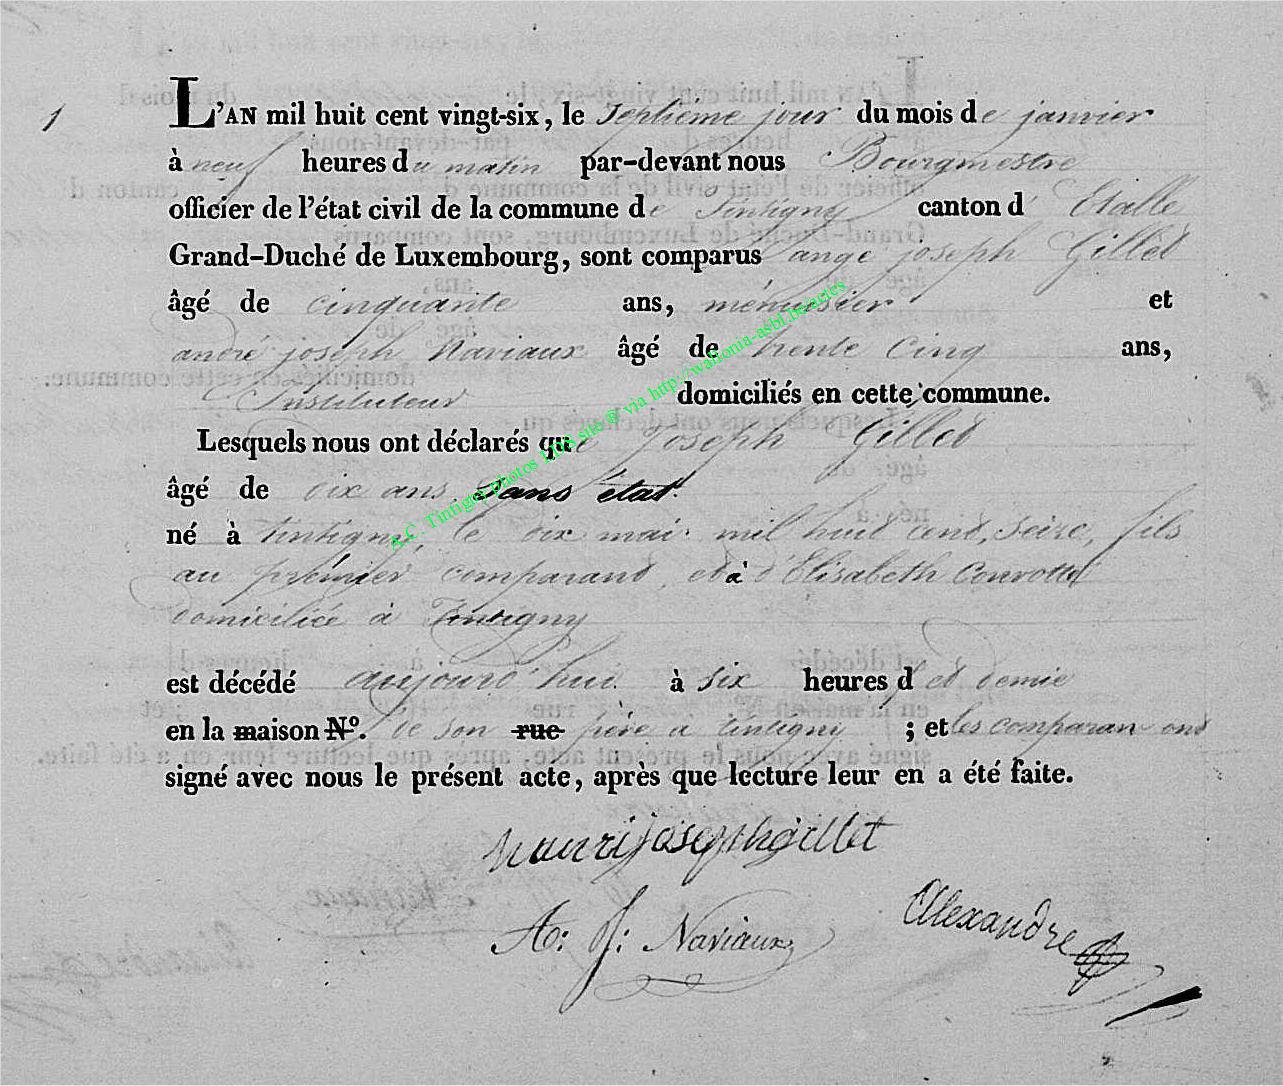 1
L'AN mil huit cent vingt-six, le Septième jour du mois de janvier
à neuf heures du matin par-devant nous Bourgmestre
officier de l'état civil de la commune de Tintigny canton d'Etalle
Grand-Duché de Luxembourg, sont comparus ange joseph Gillet
âgé de cinquante ans, ménuisier et
andré joseph Naviaux âgé de trente Cinq ans,
Instituteur domiciliés en cette commune.
Lesquels nous ont déclarés que Joseph Gillet
âgé de dix ans, Sans état.
né à tintigny, le dix mai mil huit cent, seize, fils
au prémier comparant, et à d'Elisabeth
domiciliée à Tintigny
est décédé aujourd'hui à six heures d et demie
en la maison N°. de son rue père a tintigny ; et les comparan ont
signé avec nous le présent acte, après que lecture leur en a été faite.
josephgillet
A: J: Naviaux
Alexandre
A.C. Tintigny photos LDS site @ via http://wallonia-asbl.be/actes